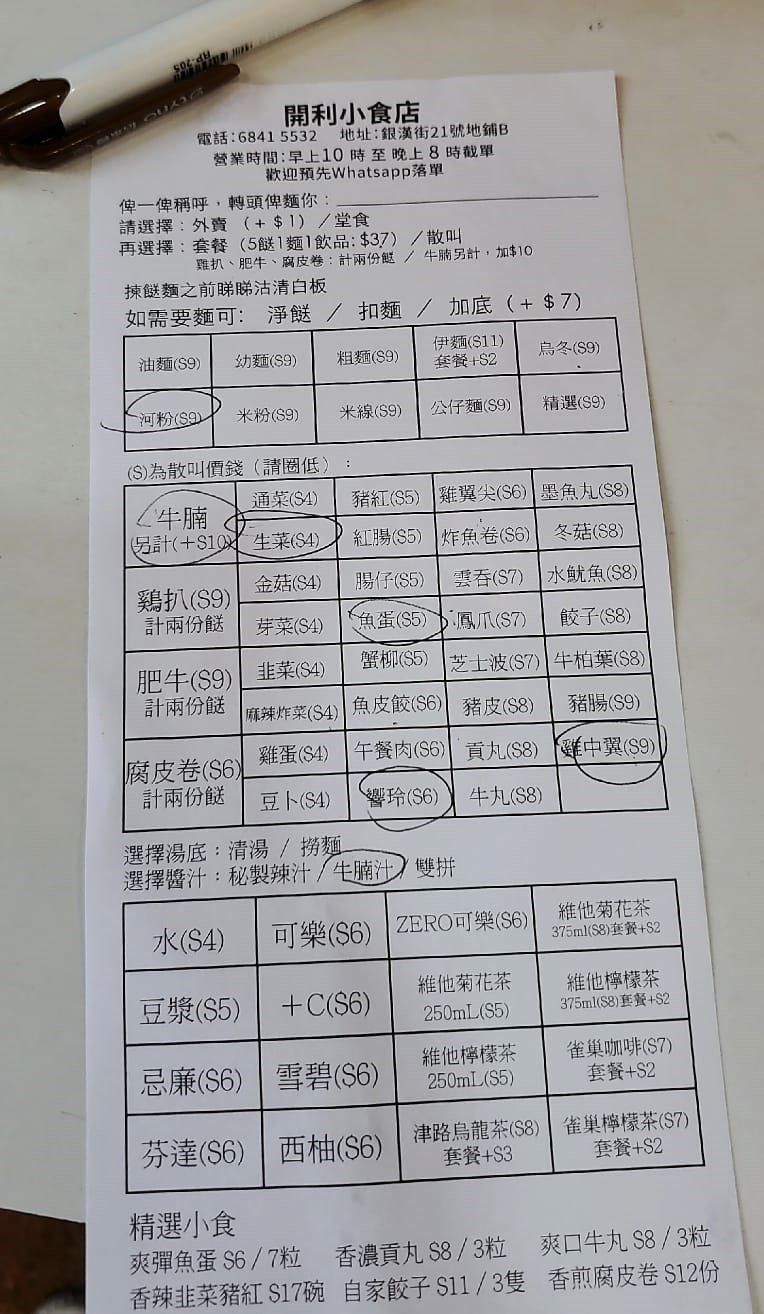 RP-205
開利小食店
電話:6841 5532 地址:銀漢街21號地鋪B
營業時間:早上10 時 至 晚上 8 時截單
歡迎預先Whatsapp落單
俾一俾稱呼，轉頭俾麵你：
請選擇：外賣 （+ $1）／堂食
再選擇：套餐（5餸1麵1飲品: $37）／散叫
雞扒、肥牛、腐皮卷：計兩份餸 ／ 牛腩另計，加$10
揀餸麵之前睇睇沽清白板
如需要麵可: 淨餸 ／ 扣麵 ／ 加底（+ $7）
油麵($9) 幼麵($9) 粗麵($9) 伊麵($11) 套餐+$2 烏冬($9)
河粉($9) 米粉($9) 米線($9) 公仔麵($9) 精選($9)
($)為散叫價錢（請圈低）:
牛腩 另計(+$10) 通菜($4) 豬紅($5) 雞翼尖($6) 墨魚丸($8)
生菜($4) 紅腸($5) 炸魚卷($6) 冬菇($8)
鷄扒($9) 計兩份餸 金菇($4) 腸仔($5) 雲吞($7) 水魷魚($8)
芽菜($4) 魚蛋($5) 鳳爪($7) 餃子($8)
肥牛($9) 計兩份餸 韭菜($4) 蟹柳($5) 芝士波($7) 牛柏葉($8)
麻辣炸菜($4) 魚皮餃($6) 豬皮($8) 豬腸($9)
腐皮卷($6) 計兩份餸 雞蛋($4) 午餐肉($6) 貢丸($8) 雞中翼($9)
豆卜($4) 響玲($6) 牛丸($8)
選擇湯底：清湯 / 撈麵
選擇醬汁：秘製辣汁 / 牛腩汁 / 雙拼
水($4) 可樂($6) ZERO可樂($6) 維他菊花茶 375ml($8)套餐+$2
豆漿($5) +C($6) 維他菊花茶 250mL($5) 維他檸檬茶 375ml($8)套餐+$2
忌廉($6) 雪碧($6) 維他檸檬茶 250mL($5) 雀巢咖啡($7) 套餐+$2
芬達($6) 西柚($6) 津路烏龍茶($8) 套餐+$3 雀巢檸檬茶($7) 套餐+$2
精選小食
爽彈魚蛋 $6 / 7粒 香濃貢丸 $8 / 3粒 爽口牛丸 $8 / 3粒
香辣韭菜豬紅 $17碗 自家餃子 $11 / 3隻 香煎腐皮卷 $12份